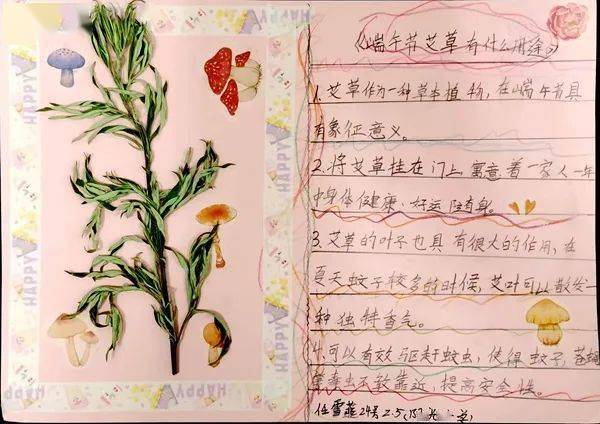 《端午节艾草有什么用途》
1. 艾草作为一种草本植物,在端午节具
有象征意义。
2. 将艾草挂在门上,寓意着一家人一年
中身体健康、好运随身。
3. 艾草的叶子也具有很大的作用,在
夏天蚊子较多的时候,艾叶可以散发一
种独特香气。
4. 可以有效驱赶蚊虫,使得蚊子,苍蝇
等毒虫不敢靠近,提高安全性。
任雪菲 24号 2.5
HAPPY
HAPPY
HAPPY
HAPPY
HAPPY
HAPPY
HAPPY
HAPPY